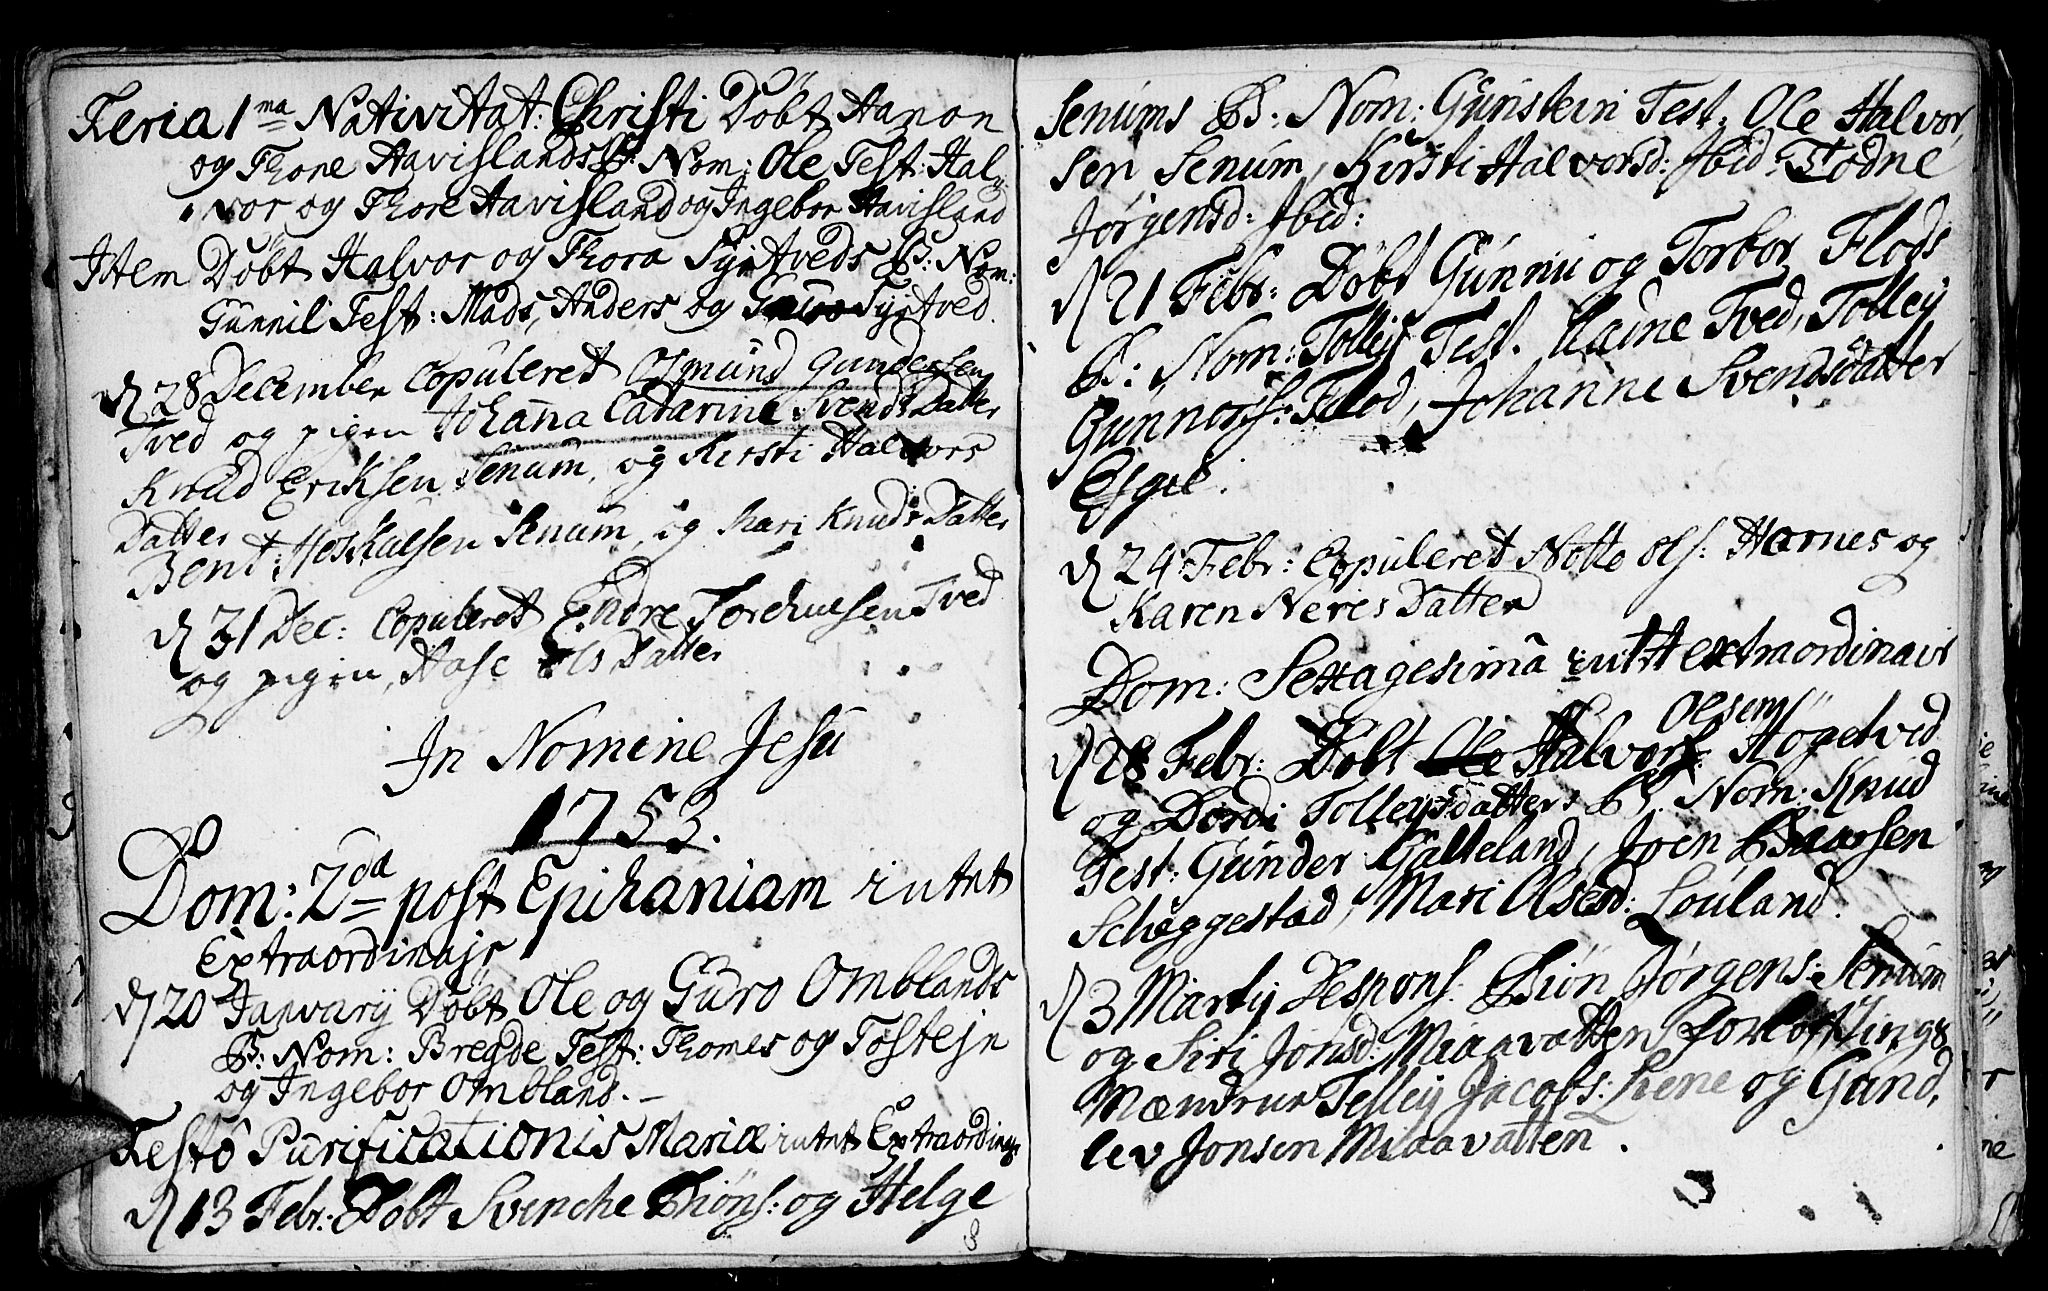 Feria 1ma Nativitat: Christi Döbt Aanon
og Thore Aavislands B: Nom: Ole Test: Hal-
vor og Thore Aavisland og Ingebor Aavisland
Item Döbt Halvor og Thora Syrtveds B: Nom:
Gunnil Test: Mads, Anders og Syrtved.
d 28 December Copuleret Osmund Gundersen
Tved og pigen Johanna Catarine Svends Datter
Knud Eriksen Senum, og Kirsti Halvors
Datter
Bent: Heskalsen Senum, og Mari Knuds Datter
d 31 Dec: Copuleret Endre Torchelsen Tved
og pigen, Aase Ols Datter
In Nomine Jesu
1753.
Dom: 2da post Epihaniam intet
Extraordinajr
d 20 Janvarij Döbt Ole og Guro Omblands
B: Nom: Bregde Test: Thomes og Tostejn
og Ingebor Ombland. –
Festo Purificationis Mariæ intet Extraordinajr
d 13 Febr: Döbt Svenche Biöns: og Helge
Senums B: Nom: Gunstein Test: Ole Halvor
sen Senum, Kirsti Halvorsd: Ibid: Todne
Jörgensd: Ibid:
d 21 Febr: Döbt Gunnu og Torbor Flods
B: Nom: Tollejf Test. Tved, Tollej
Gunnors: Flod, Johanne Svendsdatter
d 24 Febr: Copuleret Notto Ols: Hornes og
Karen Neres Datter
Dom: Sexagesima intet extraordinair
Olsens
d 28 Febr: Döbt Ole Halvors Högetved
og Dordi Tollejsdatters B. Nom: Knud
Test: Gunder Galteland, Joen Baarsen
Scheggestad, Mari Olsd: Löuland.
d 3 Martij Despons: Biön Jörgens: Senum
og Siri Jonsd: Miaavatten Forlofnings
Mændrne Tellej Jacobs: Lene og Gund,
lev Jonsen Miaavatten.